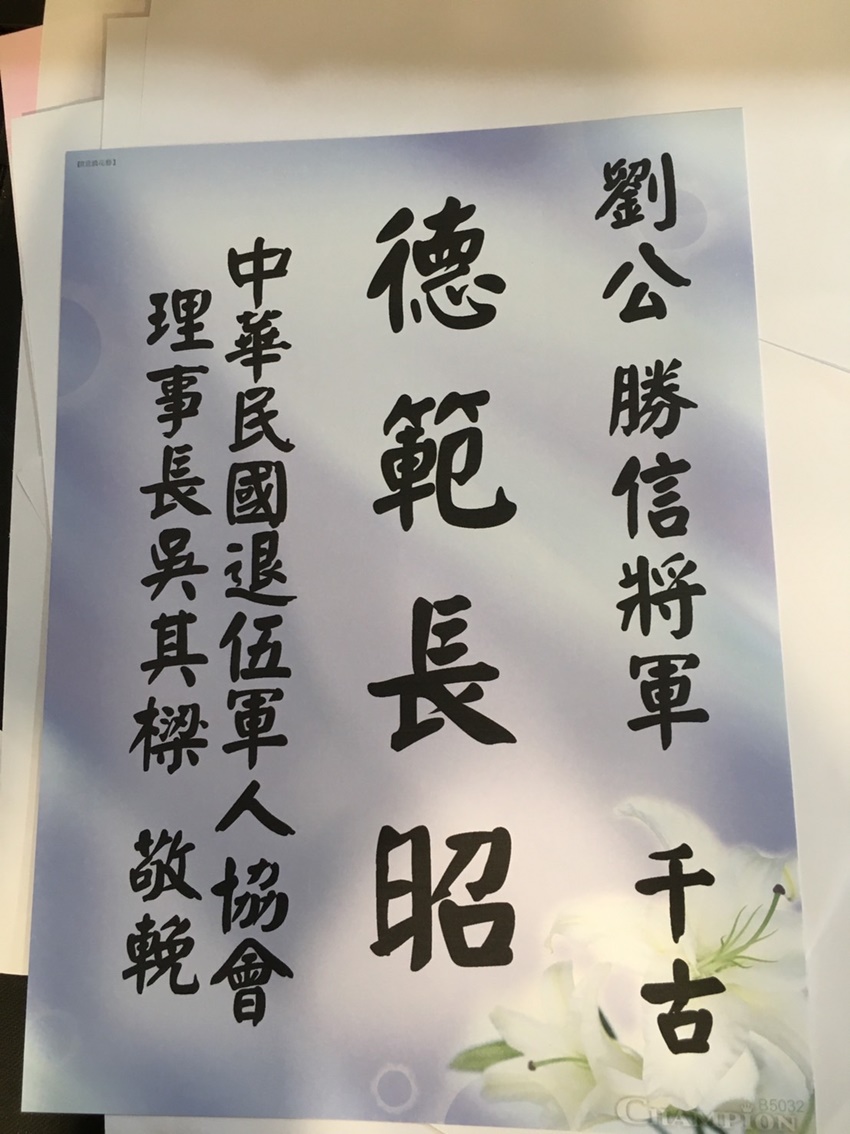 劉公勝信將軍 千古
德範長昭
中華民國退伍軍人協會
理事長吳其樑 敬輓
CHAMPION
B5032